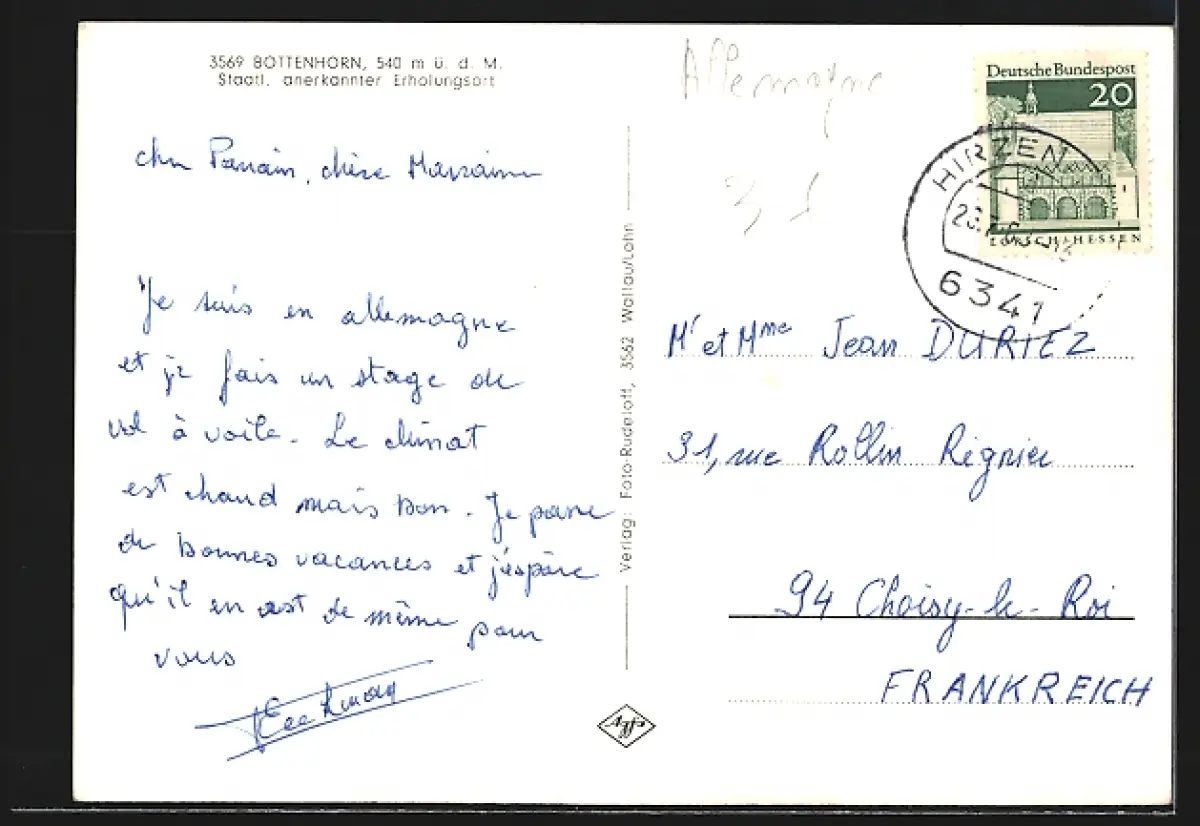 3569 BOTTENHORN, 540 m ü. d. M.
Staatl. anerkannter Erholungsort
cher Parrain, chère Marraine
Je suis en allemagne
et je fais un stage de
vol à voile. Le climat
est chaud mais bon. Je passe
de bonnes vacances et j'espère
qu'il en est de même pour
vous
Verlag: Foto-Rudeloff, 3562 Wallau/Lahn
Agfa
Allemagne
31
Deutsche Bundespost
20
LORSCH/HESSEN
HIRZEN
6341
Mr et Mme Jean DURIEZ
31, rue Rollin Régnier
94 Choisy-le-Roi
FRANKREICH